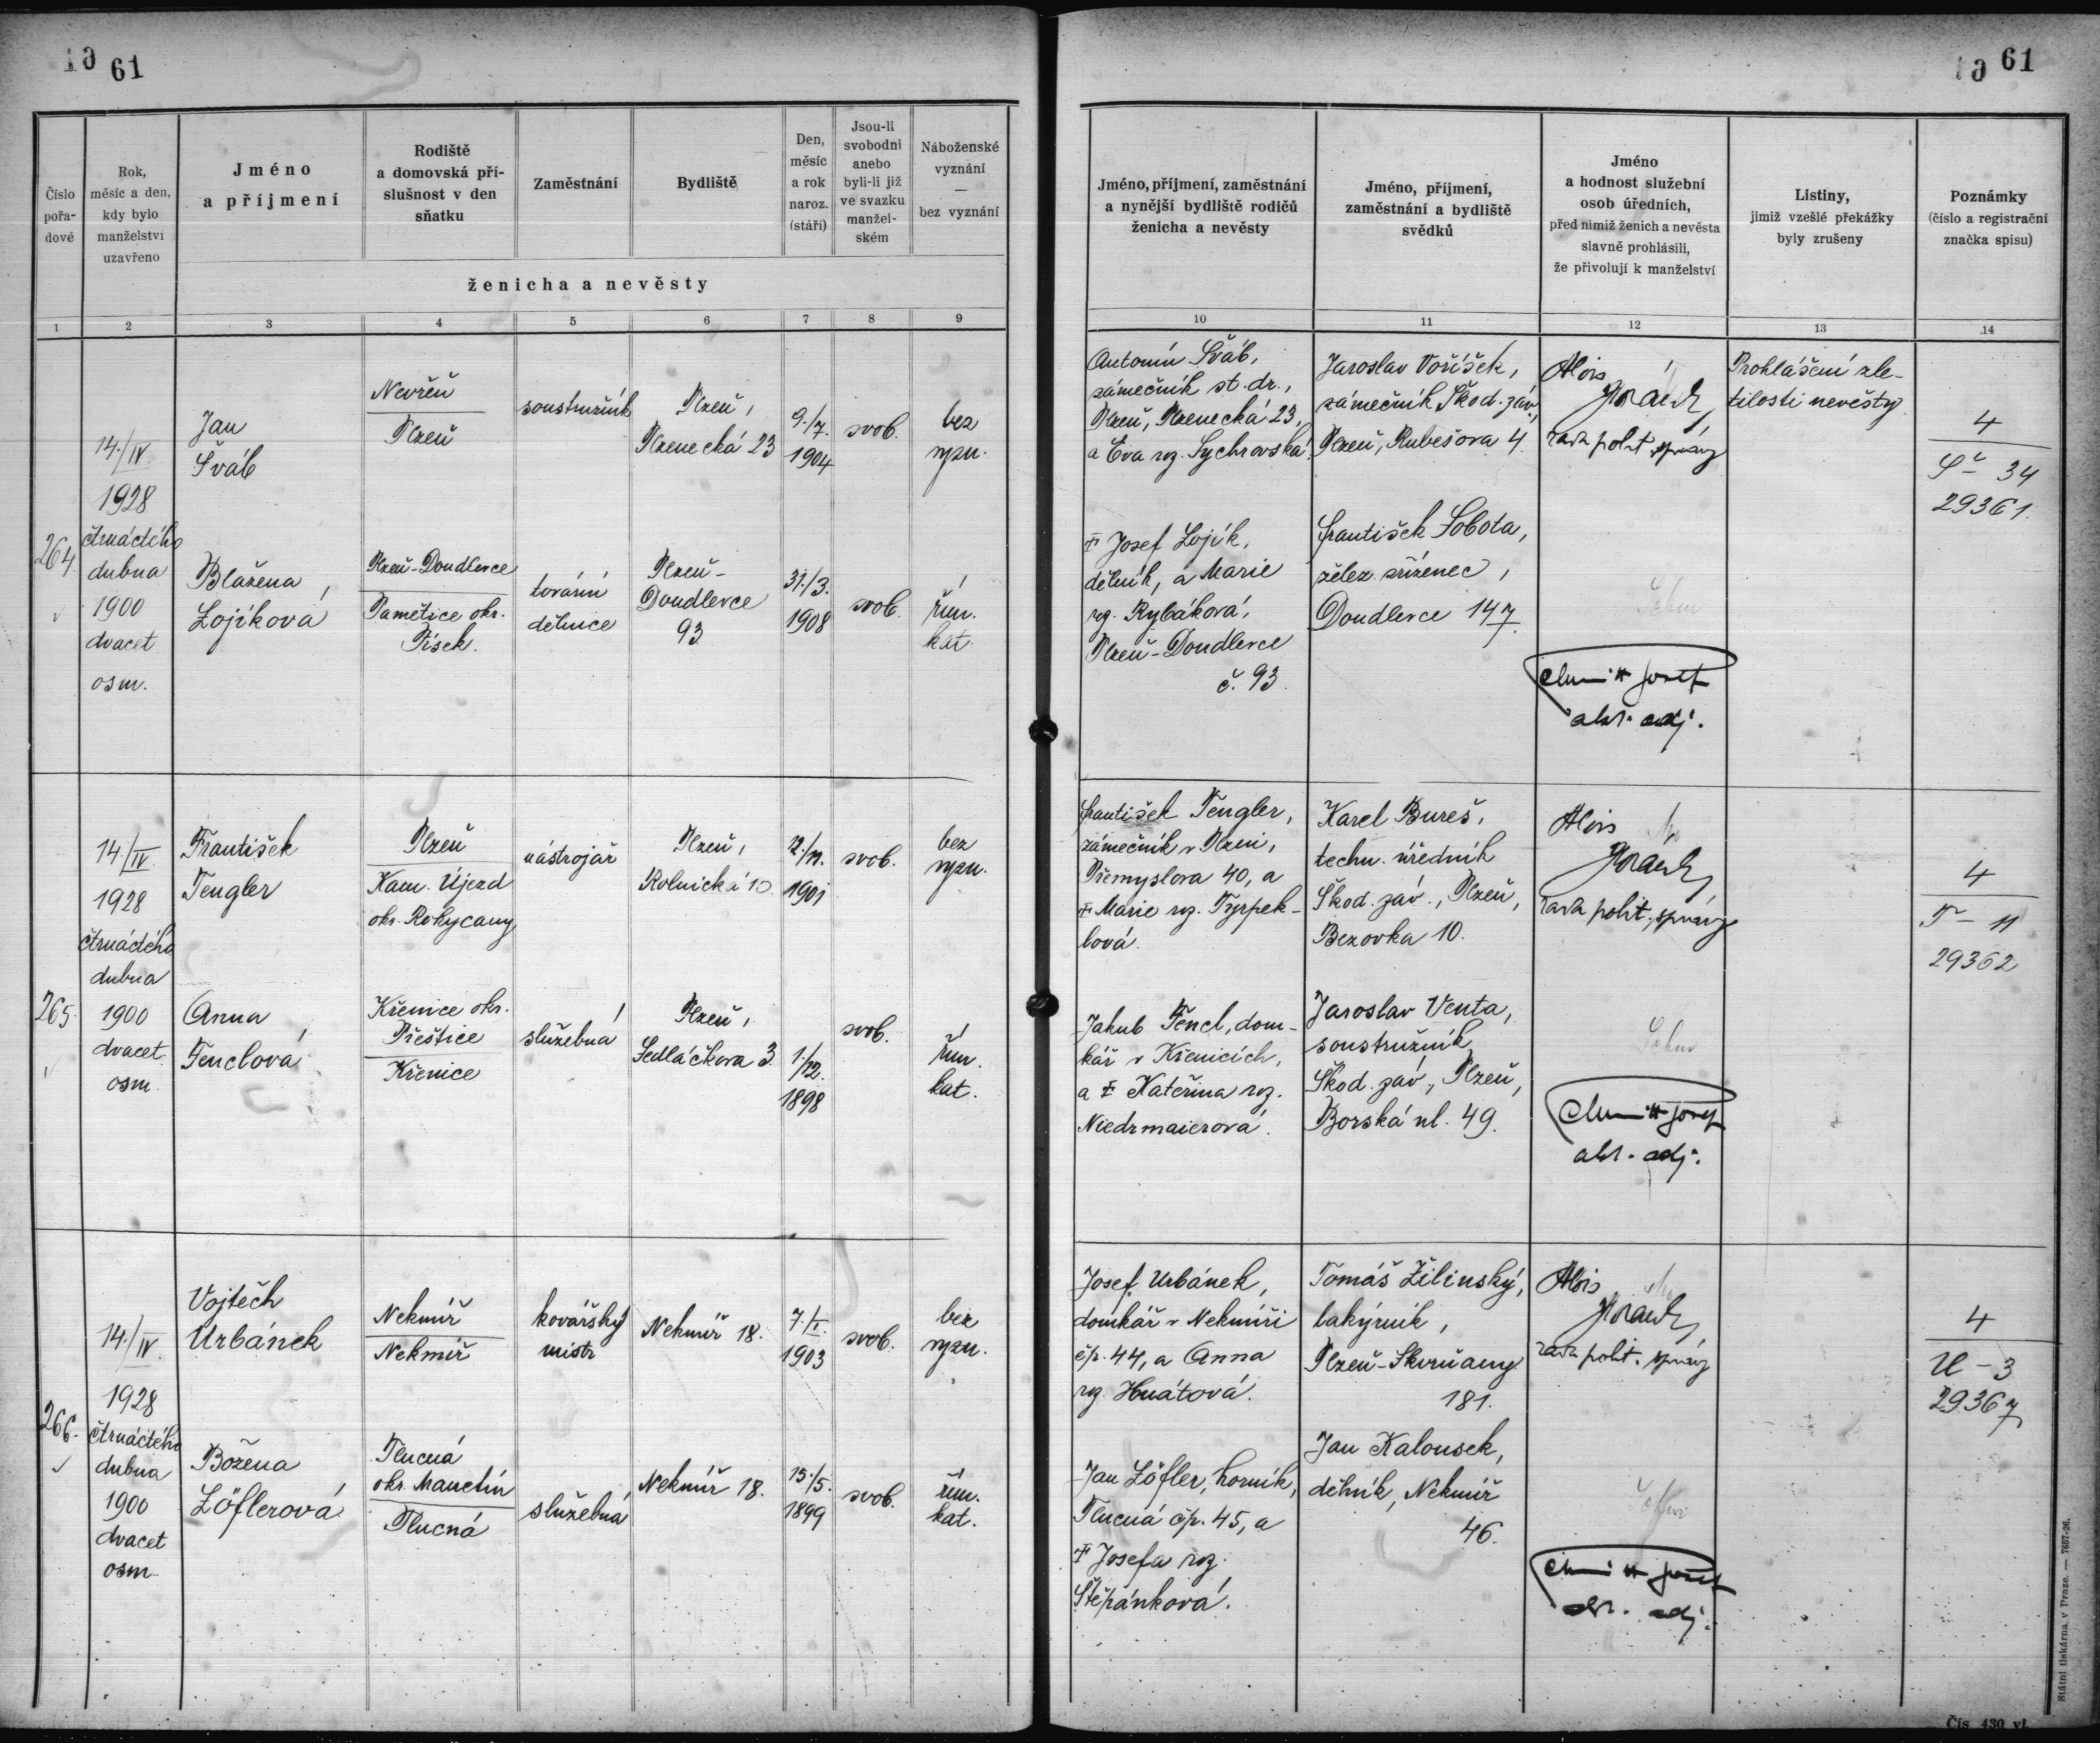 61
61
Číslo
pořa-
dové
Rok,
měsíc a den,
kdy bylo
manželství
uzavřeno
Jméno
a příjmení
Rodiště
a domovská pří-
slušnost v den
sňatku
Zaměstnání
Bydliště
Den,
měsíc
a rok
naroz.
(stáří)
Jsou-li
svobodni
anebo
byli-li již
ve svazku
manžel-
ském
Náboženské
vyznání
—
bez vyznání
ženicha a nevěsty
Jméno, příjmení, zaměstnání
a nynější bydliště rodičů
ženicha a nevěsty
Jméno, příjmení,
zaměstnání a bydliště
svědků
Jméno
a hodnost služební
osob úředních,
před nimiž ženich a nevěsta
slavně prohlásili,
že přivolují k manželství
Listiny,
jimiž vzešlé překážky
byly zrušeny
Poznámky
(číslo a registrační
značka spisu)
1 2 3 4 5 6 7 8 9
10 11 12 13 14
264
14./IV.
1928
čtrnáctého
dubna
1900
dvacet
osm.
Jan
Šváb
Nevřeň
Plzeň
soustružník
Plzeň,
Plzenecká 23
9./7.
1904
svob.
bez
vyzn.
Antonín Šváb,
zámečník st. dr.,
Plzeň, Plzenecká 23,
a Eva roz. Sychrovská.
Jaroslav Voříšek,
zámečník Škod. záv.,
Plzeň, Rubešova 4.
Alois
rada polit. správy
Prohlášení zle-
tilosti nevěsty
4
Š - 34
29361.
Blažena
Lojíková
Plzeň-Doudlevce
Pamětice okr.
Písek.
tovární
dělnice
Plzeň-
Doudlevce
93
31./3.
1908
svob.
řím.
kat.
Josef Lojík,
dělník, a Marie
roz. Rybáková,
Plzeň-Doudlevce
č. 93.
František Sobota,
želez. zřízenec,
Doudlevce 147.
Josef
adj.
265.
14./IV.
1928
čtrnáctého
dubna
1900
dvacet
osm.
František
Tengler
Plzeň
Kam. Újezd
okr. Rokycany
nástrojař
Plzeň,
Rolnická 10.
1901
svob.
bez
vyzn.
František Tengler,
zámečník v Plzni,
Přemyslova 40, a
Marie roz. Tyrpek-
lová.
Karel Bureš,
techn. úředník
Škod. záv., Plzeň,
Bezovka 10.
Alois
rada polit. správy
4
T - 11
29362
Anna
Fenclová
Křenice okr.
Přeštice
Křenice
služebná
Plzeň,
Sedláčkova 3.
1./12.
1898
svob.
řím.
kat.
Jakub Fencl, dom-
kář v Křenicích,
a Kateřina roz.
Niedrmaierová.
Jaroslav Venta,
soustružník
Škod. záv., Plzeň,
Borská ul. 49.
Josef
adj.
266.
14./IV.
1928
čtrnáctého
dubna
1900
dvacet
osm.
Vojtěch
Urbánek
Nekmíř
Nekmíř
kovářský
mistr
Nekmíř 18.
7./I.
1903
svob.
bez
vyzn.
Josef Urbánek,
domkář v Nekmíři
čp. 44, a Anna
roz. Hnátová.
Tomáš Žilinský,
lakýrník,
Plzeň-Skvrňany
181.
Alois
rada polit. správy
4
U - 3
29367
Božena
Löflerová
Tlucná
okr. Manětín
Tlucná
služebná
Nekmíř 18.
15./5.
1899
svob.
řím.
kat.
Jan Löfler, horník,
Tlucná čp. 45, a
Josefa roz.
Štěpánková.
Jan Kalousek,
dělník, Nekmíř
46.
Josef
adj.
Státní tiskárna v Praze. — 7657-26.
Čís. 430 vl.